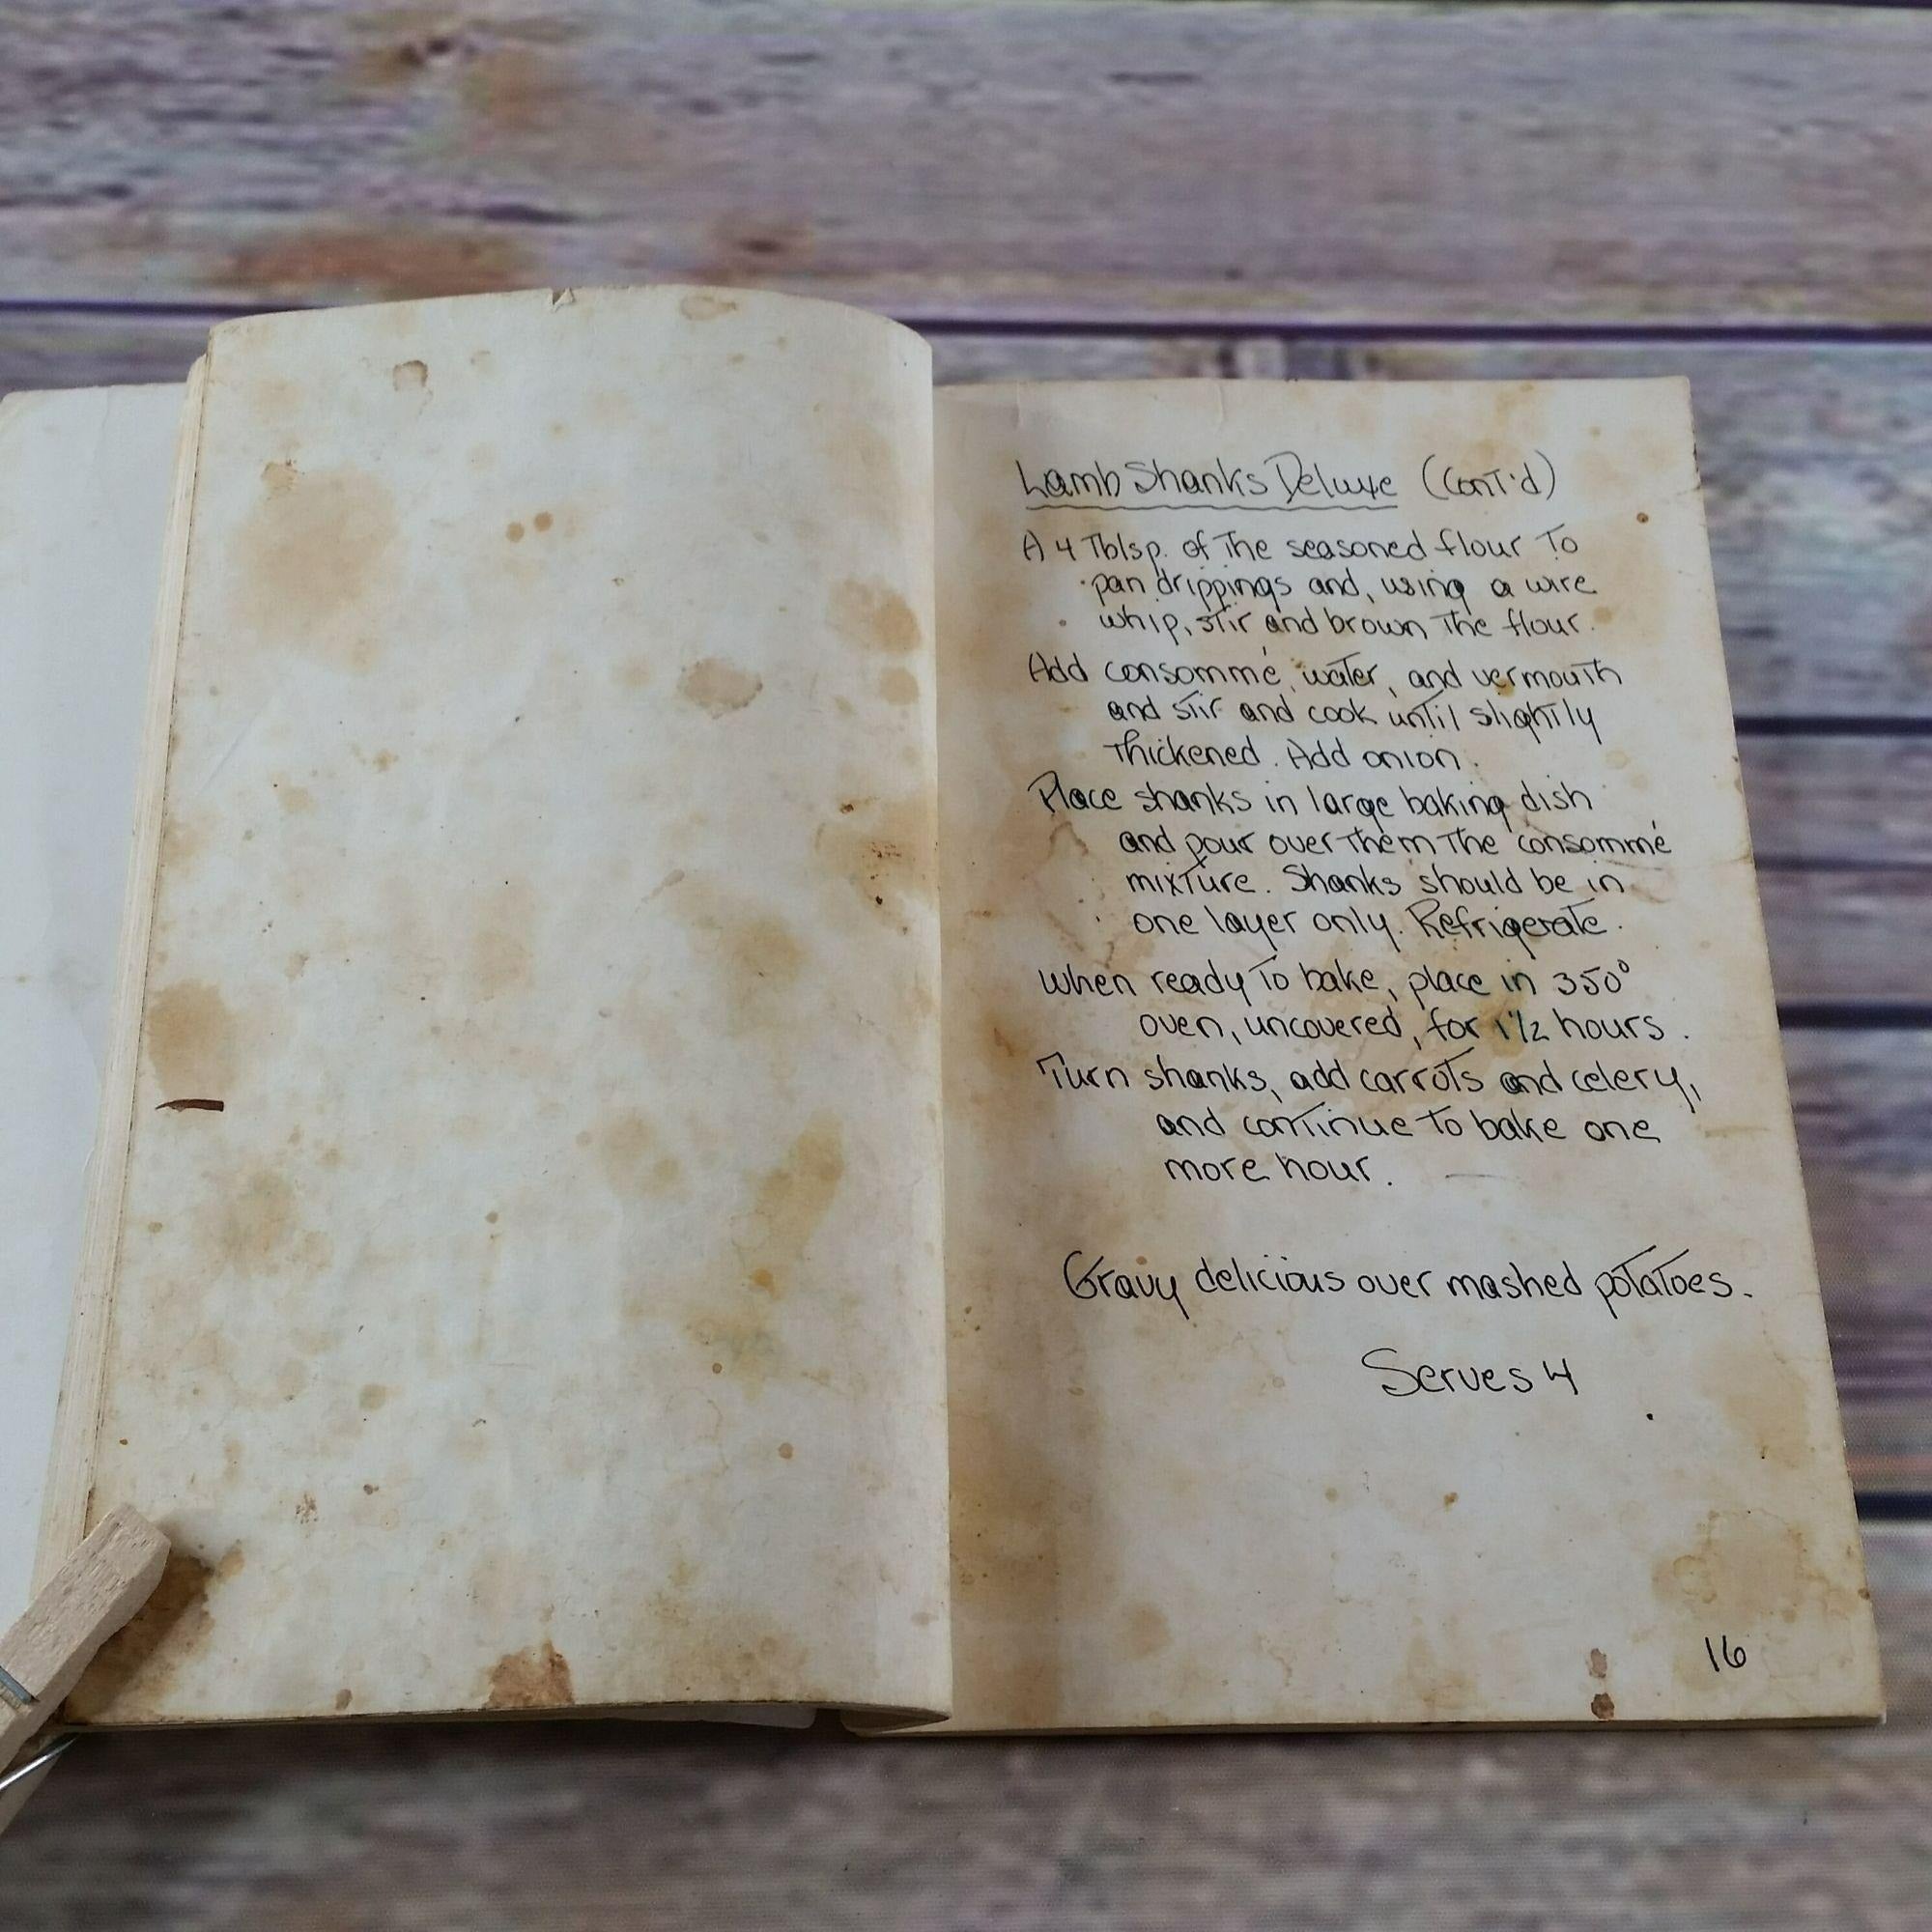 Lamb Shanks Deluxe (Cont'd)
A 4 Tblsp. of the seasoned flour to
pan drippings and, using a wire
whip, stir and brown the flour.
Add consommé, water, and vermouth
and stir and cook until slightly
thickened. Add onion.
Place shanks in large baking dish
and pour over them the consommé
mixture. Shanks should be in
one layer only. Refrigerate.
When ready to bake, place in 350°
oven, uncovered, for 1 1/2 hours.
Turn shanks, add carrots and celery,
and continue to bake one
more hour.
Gravy delicious over mashed potatoes.
Serves 4
16